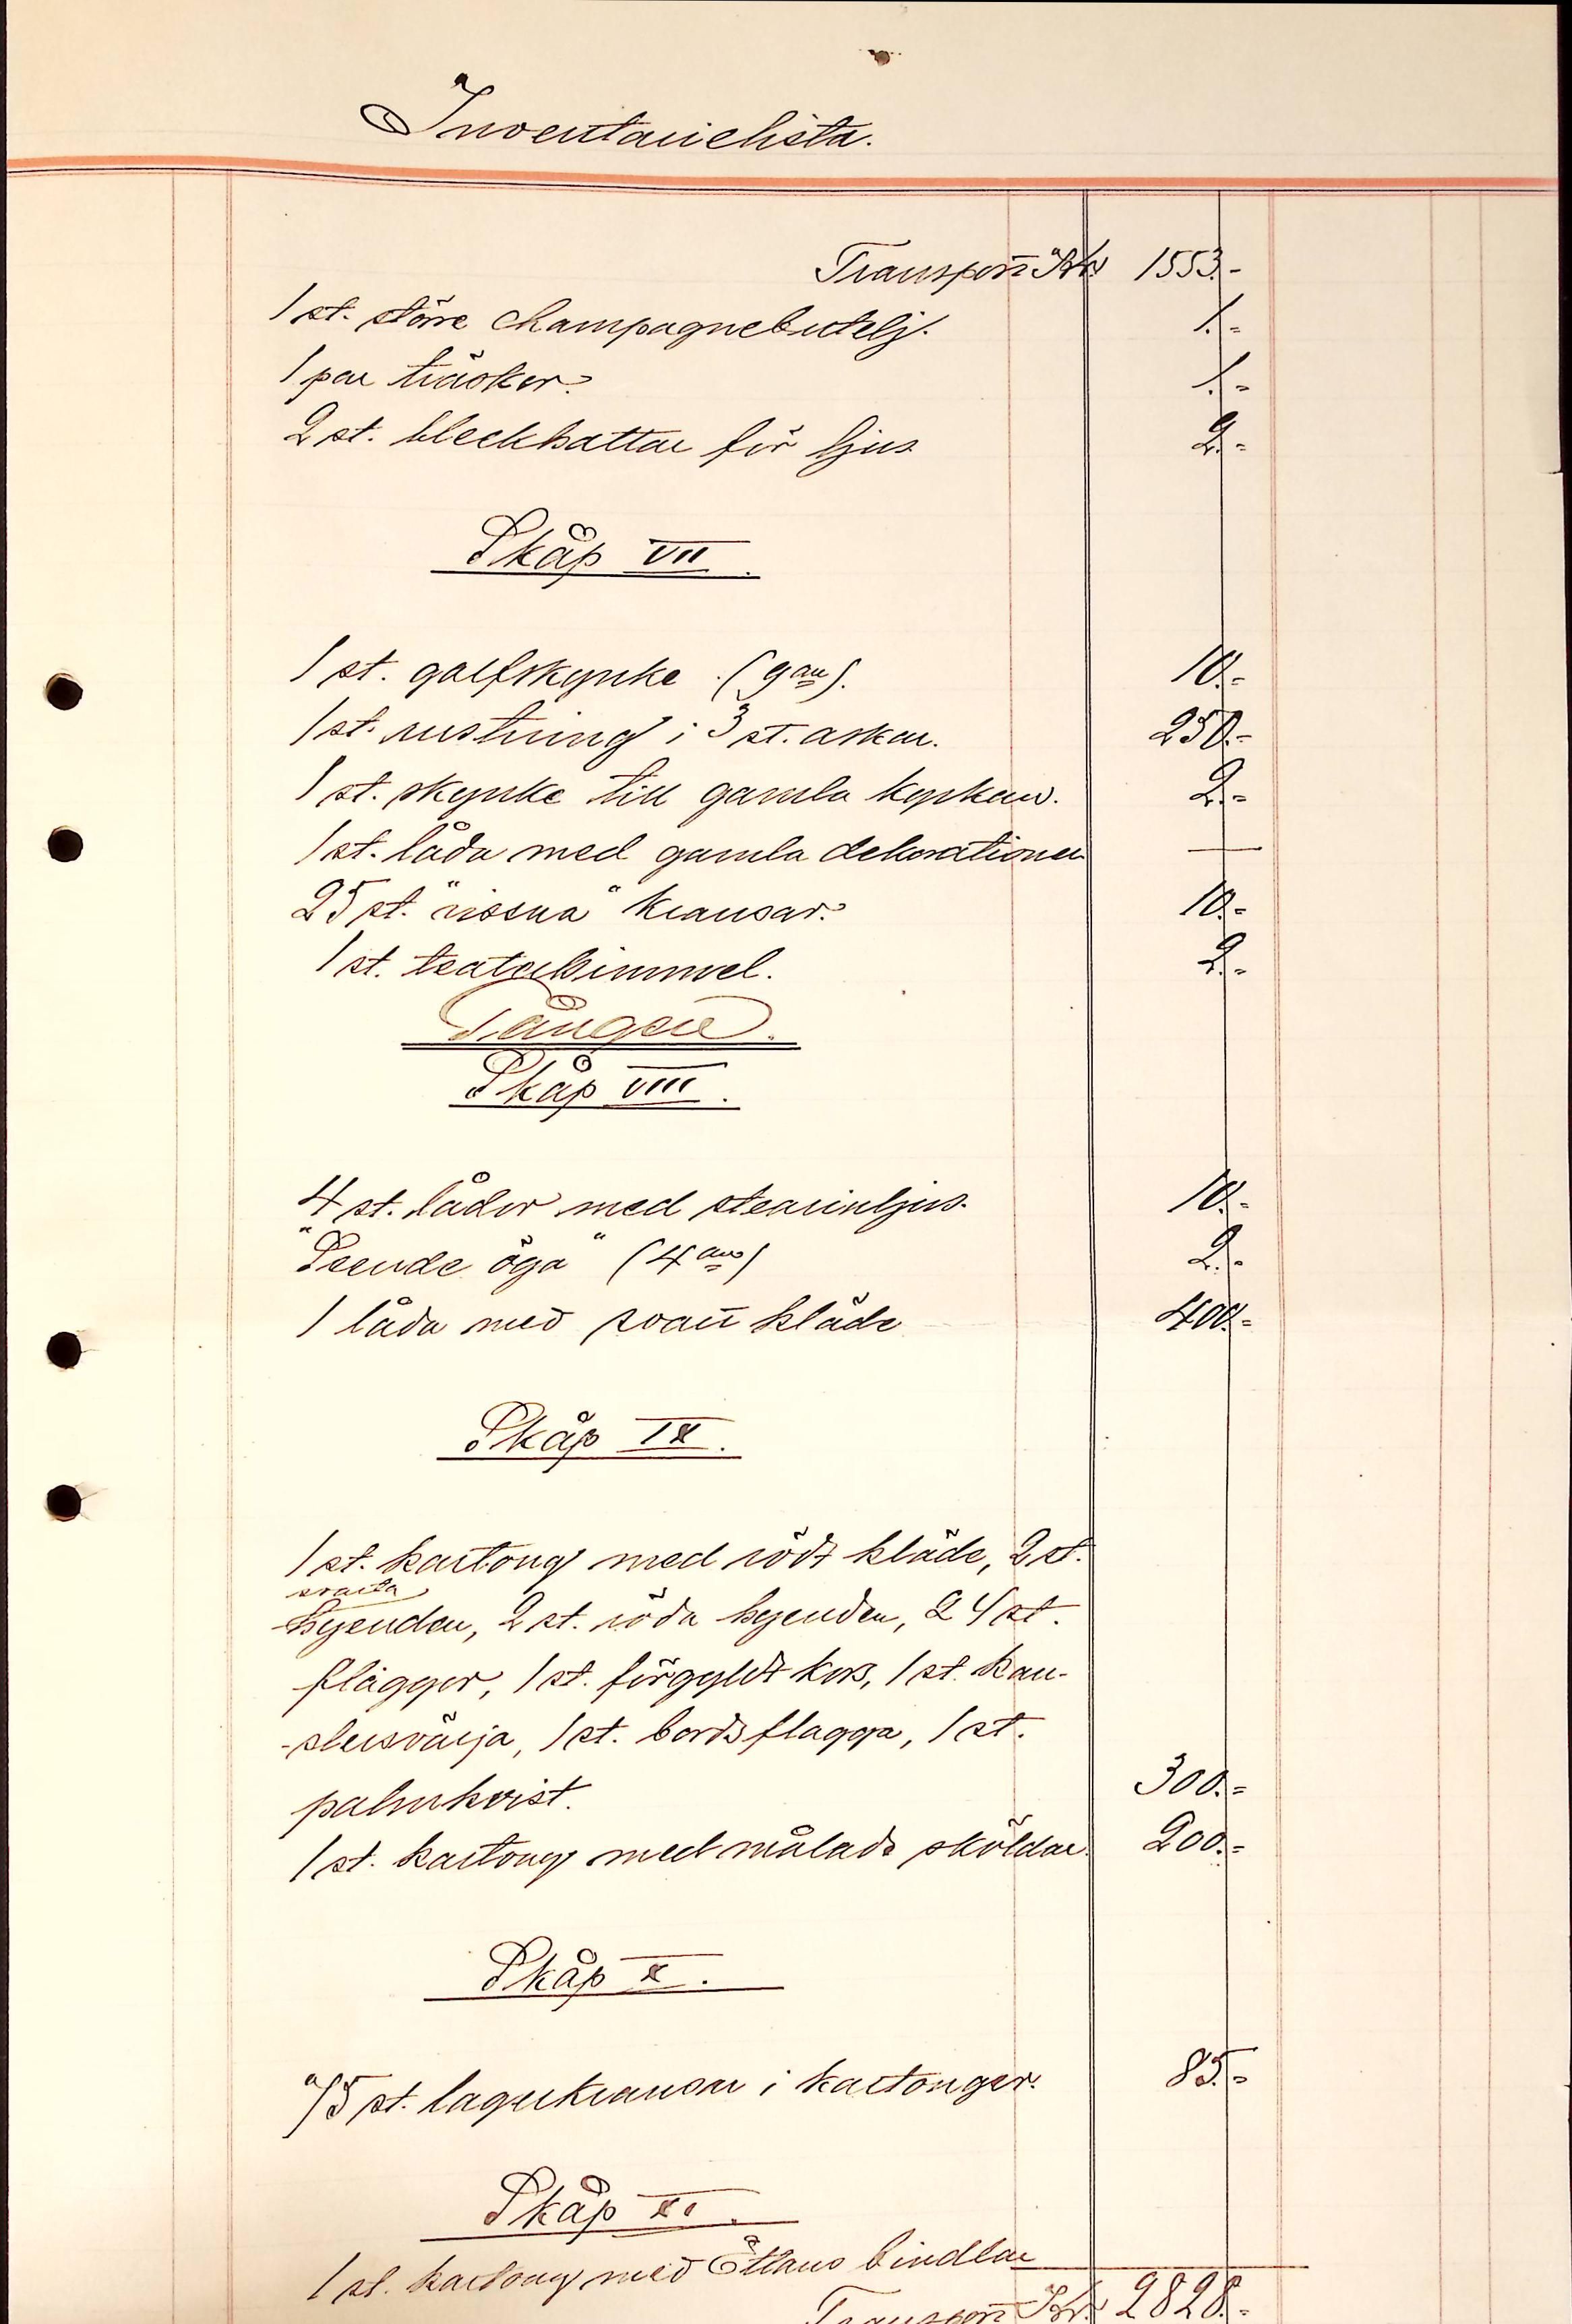 Inventarielista.
Transport Kr. 1553.-
1 st. större champagnebutelj. 1.-
1 par träskor. 1.-
2 st. bleckhattar för ljus 2.-
Skåp VII.
1 st. golfskynke (9an). 10.-
1 st. rustning i 3 st. askar. 250.-
1 st. skynke till gamla kyrkan. 2.-
1 st. låda med gamla dekorationer —
25 st. "vissna" kransar. 10.-
1 st. teaterhimmel. 2.-
Gången.
Skåp VIII.
4 st. lådor med stearinljus. 10.-
"Seende öga" (4an) 2.-
1 låda med svart kläde 400.-
Skåp IX.
1 st. kartong med rödt kläde, 2 st.
svarta
hyenden, 2 st. röda hyenden, 24 st.
flaggor, 1 st. förgyldt kors, 1 st. kan-
slersvärja, 1 st. bordsflagga, 1 st.
palmkvist. 300.-
1 st. kartong med målade sköldar. 200.-
Skåp X.
75 st. lagerkransar i kartonger. 85.-
Skåp XI.
1 st. kartong med bindlar
Transport Kr. 2828.-